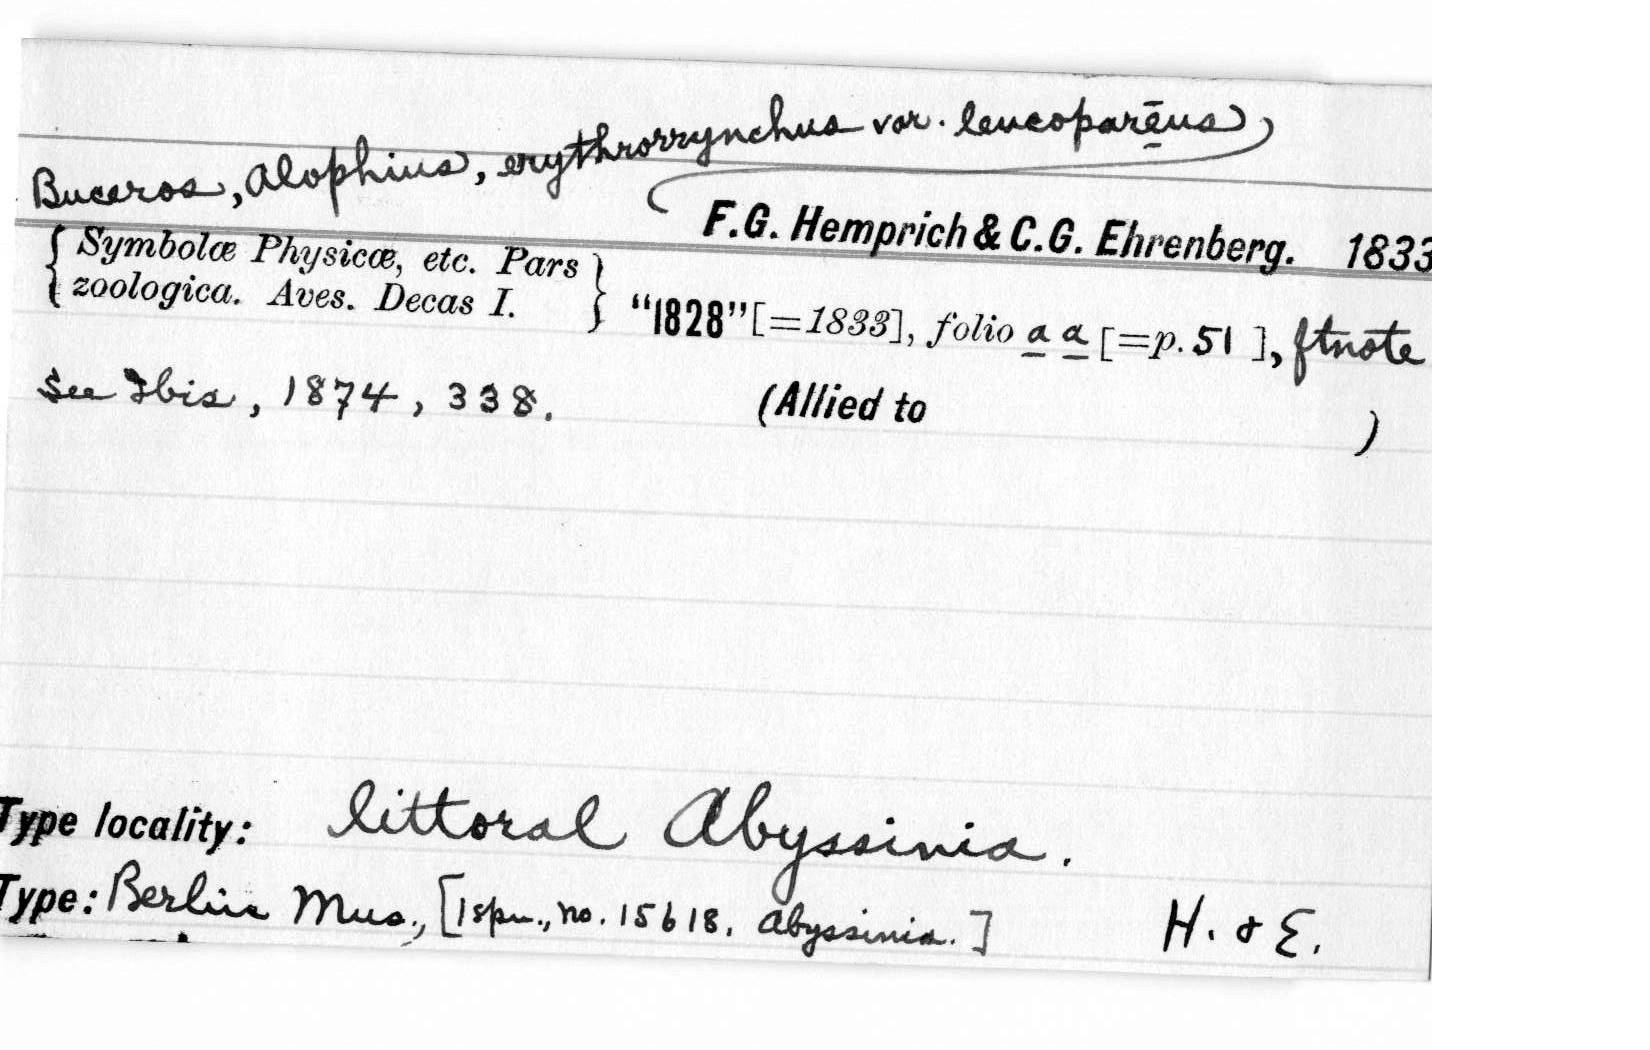 Buceros, Alophius, erythrorrynchus var. leucoparēus,
F.G. Hemprich & C.G. Ehrenberg. 1833
{ Symbolæ Physicæ, etc. Pars
zoologica. Aves. Decas I. } "1828" [=1833], folio a a [=p. 51 ], ftnote
See Ibis, 1874, 338. (Allied to )
Type locality: littoral Abyssinia.
Type: Berlin Mus., [1 spm., no. 15618. Abyssinia.] H. & E.